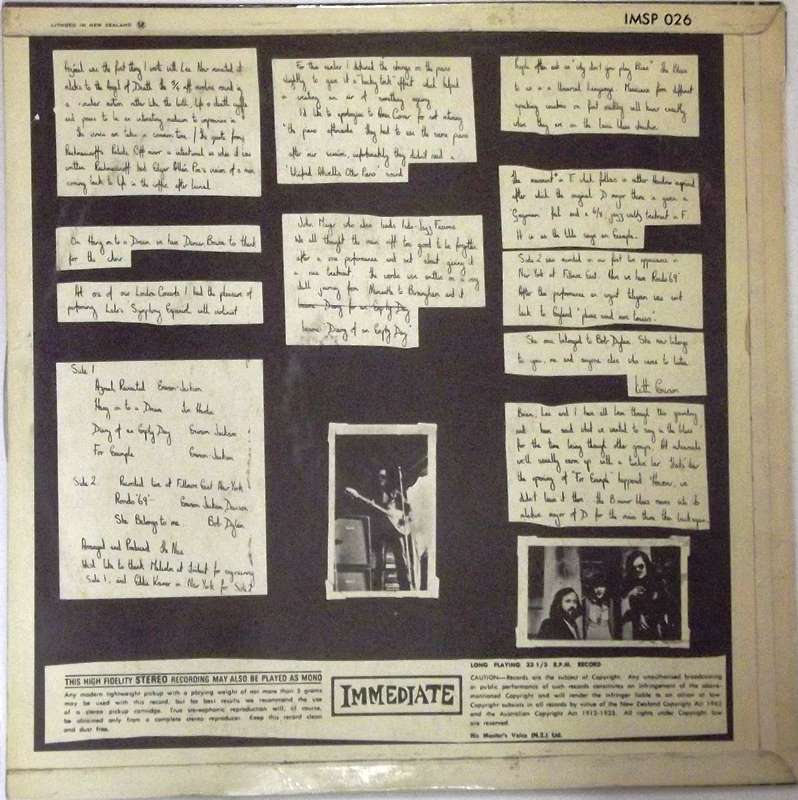 LITHOED IN NEW ZEALAND
IMSP 026
Azrael was the first thing I wrote with Lee. Now revisited it
relates to the Angel of Death the 5/4 riff revolves round in
a circular motion rather like the
and proves to be an interesting medium to improvise in
Rachmaninoff's Prelude C# minor is intentional as when it was
written Rachmaninoff had Edgar Allan Poe's version of a man
coming back to life in the coffin after burial
On Hang on to a Dream we have Duncan Browne to thank
for the choir.
At one of our London Concerts I had the pleasure of
performing Lalo's Symphony Espanol with violinist
For this number I detuned the strings on the piano
slightly to give it a "honky tonk" effect which helped
in creating an air of something
I'd like to apologise to for not retuning
the piano afterwards they had to use the same piano
after our session, unfortunately they didn't need a
'Winifred Atwell's Other Piano' sound
John Mayer who also leads Indo-Jazz Fusions.
We all thought the main riff too good to be forgotten
after one performance and set about giving it
a nice treatment the words were written on a very
dull journey from Newcastle to Birmingham and it
became Diary for an Empty Day
became 'Diary of an Empty Day'
People often ask us "why don't you play Blues" The Blues
to us is a Universal Language. Musicians from different
speaking countries on first meeting will know exactly
where they are on the basic blues structure.
The movement in F which follows is rather Handrew inspired
after which the original D major theme is given a
feel and a 6/8 jazz waltz treatment in F.
It is as the title says an Example.
Side 2 was recorded on our first live appearance in
New York at Fillmore East. Here we have Rondo '69'
After the performance an urgent telegram was sent
back to England "please send more
She once belonged to Bob Dylan. She now belongs
to you, me and anyone else who cares to listen.
Keith Emerson
Brian, Lee and I have all been through this
and have said what we wanted to say in the 'blues'
for the time being through other groups. At rehearsals
we'll usually warm up with a twelve bar. That's how
the opening of "For Example" happened. However, we
didn't leave it there the B minor blues moves into its
relative major of D for the main theme then back again.
Side 1
Azrael Revisited Emerson-Jackson
Hang on to a Dream Tim Hardin
Diary of an Empty Day Emerson Jackson
For Example Emerson-Jackson
Side 2 Recorded live at Fillmore East New York
Rondo '69' Emerson Jackson Davison
She Belongs to me Bob Dylan
Arranged and Produced The Nice
We'd like to thank Malcolm at Trident for engineering
Side 1, and Eddie Kramer in New York for Side 2
THIS HIGH FIDELITY STEREO RECORDING MAY ALSO BE PLAYED AS MONO
Any modern lightweight pickup with a playing weight of not more than 5 grams
may be used with this record, but for best results we recommend the use
of a stereo pickup cartridge. True stereophonic reproduction will, of course,
be obtained only from a complete stereo reproducer. Keep this record clean
and dust free.
IMMEDIATE
LONG PLAYING 33 1/3 R.P.M. RECORD
CAUTION—Records are the subject of Copyright. Any unauthorised broadcasting
or public performance of such records constitutes an infringement of the above-
mentioned Copyright and will render the infringer liable to an action at law.
Copyright subsists in all records by virtue of the New Zealand Copyright Act 1962
and the Australian Copyright Act 1912-1935. All rights under Copyright law
are reserved.
His Master's Voice (N.Z.) Ltd.